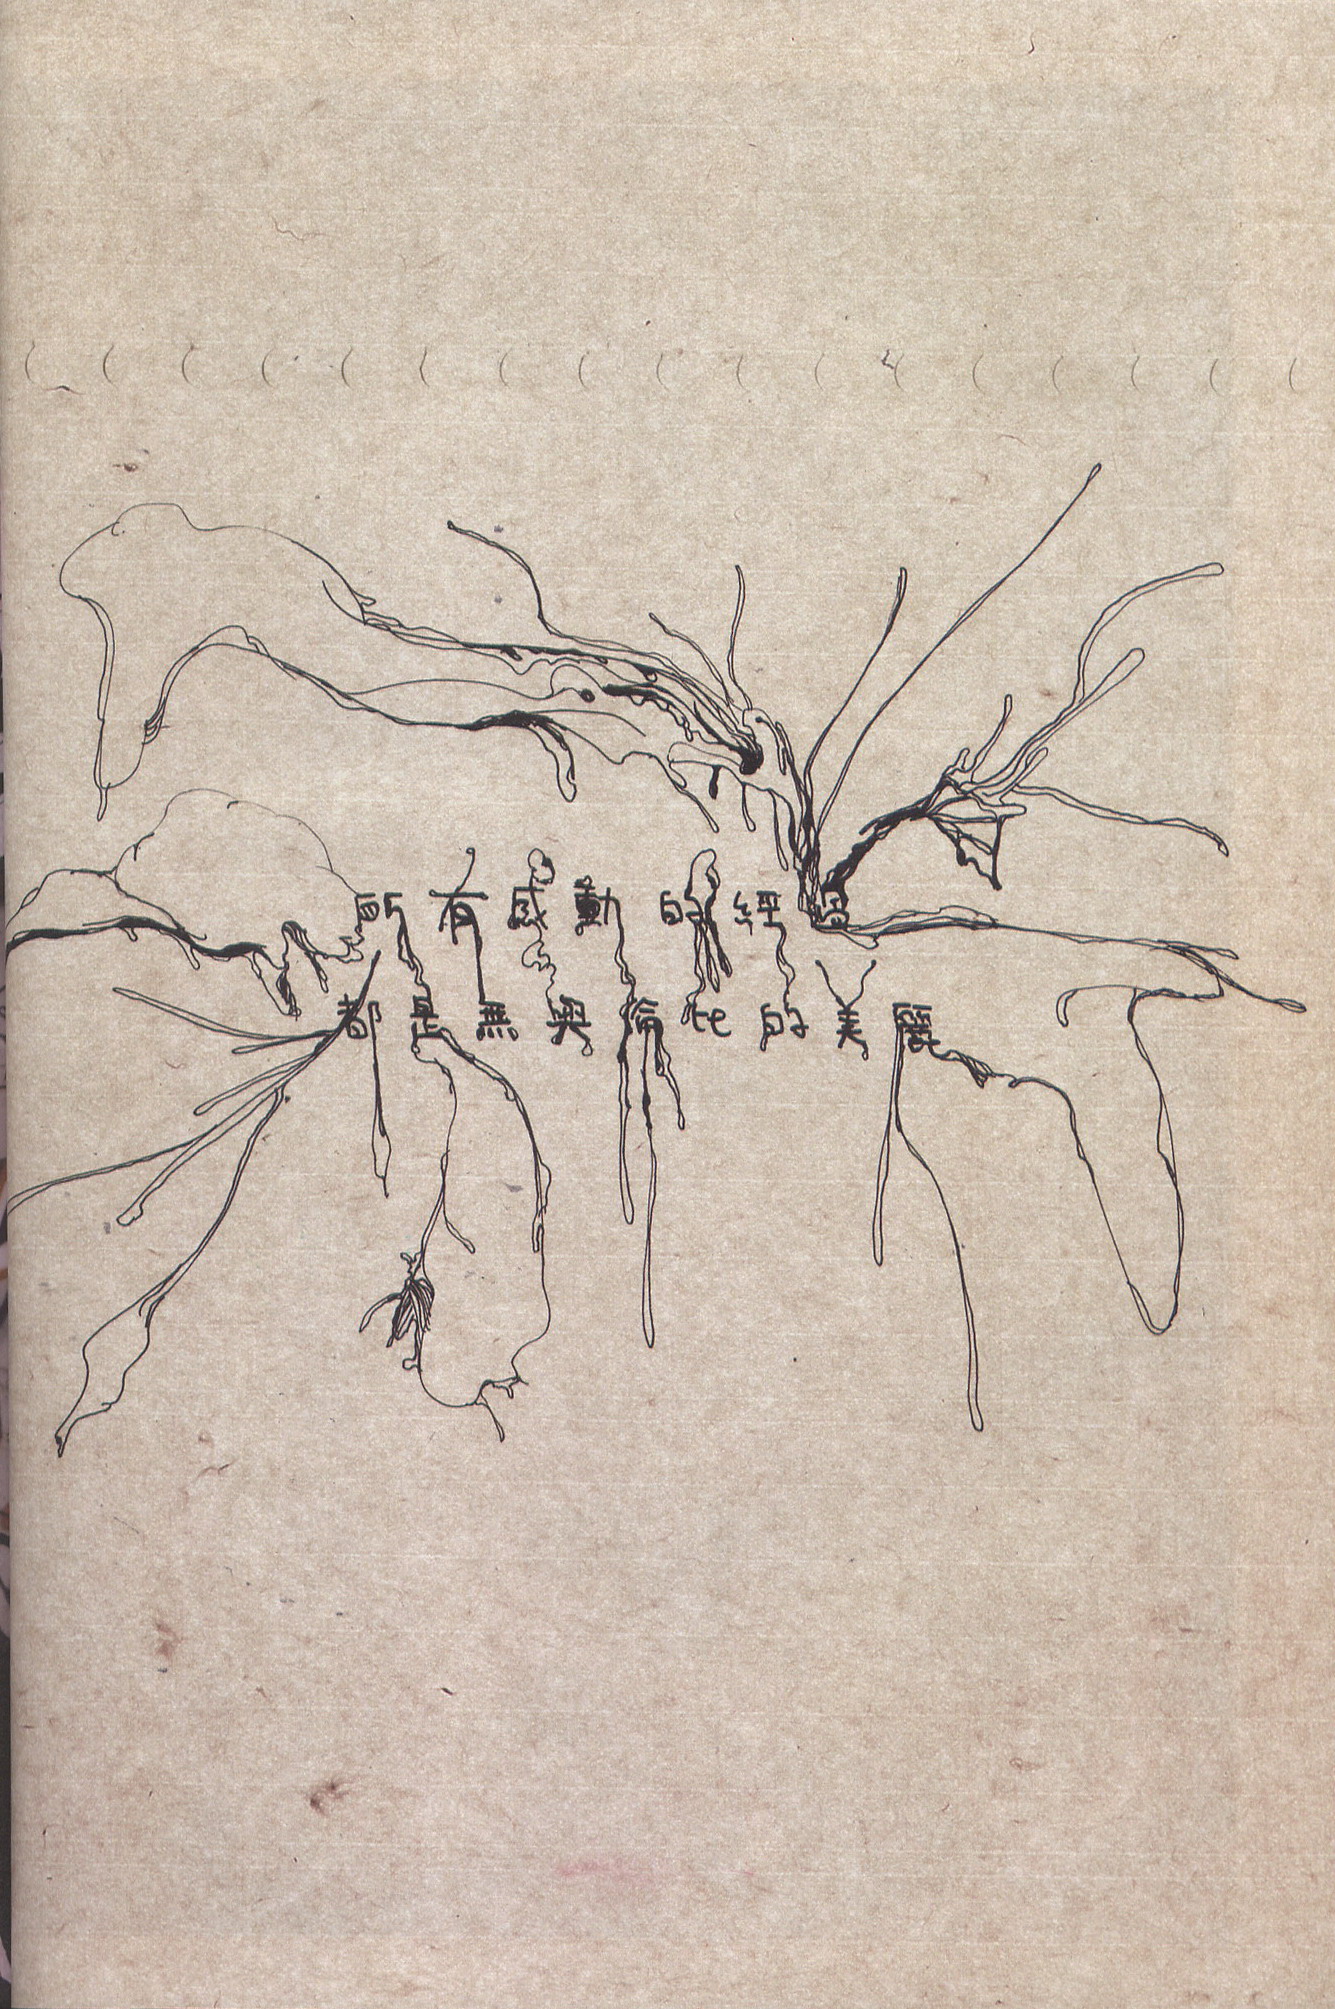 所有感動的經過
都是無與倫比的美麗